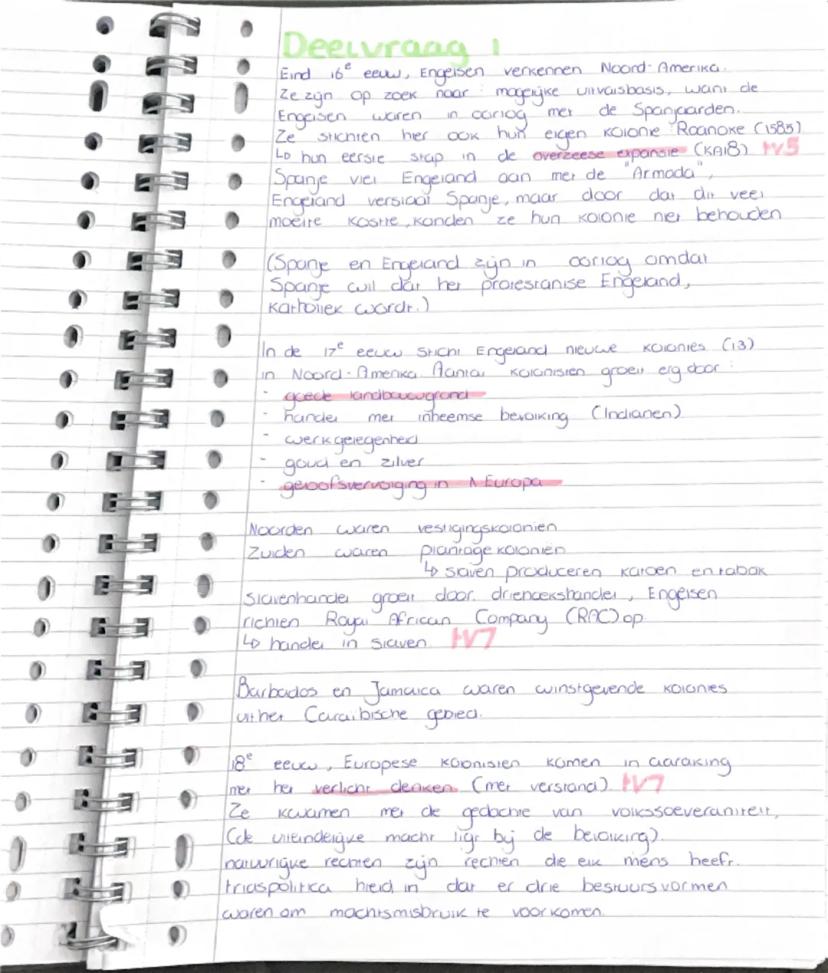 Deelvraag 1
Eind 16e eeuw, Engelsen verkennen Noord-Amerika.
Ze zijn op zoek naar mogelijke uitvalsbasis, want de
Engelsen waren in oorlog met de Spanjaarden.
Ze stichten hier ook hun eigen kolonie Roanoke (1585)
↳ hun eerste stap in de overzeese expansie (KA18) HV5
Spanje viel Engeland aan met de "Armada",
Engeland verslaat Spanje, maar door dat dit veel
moeite kostte, konden ze hun kolonie niet behouden
(Spanje en Engeland zijn in oorlog omdat
Spanje wil dat het protestantse Engeland,
Katholiek wordt.)
In de 17e eeuw sticht Engeland nieuwe kolonies (13)
in Noord-Amerika. Aantal kolonisten groeit erg door:
- goede landbouwgrond
- handel met inheemse bevolking (Indianen)
- werkgelegenheid
- goud en zilver
- geloofsvervolging in Europa
Noorden waren vestigingskoloniën
Zuiden waren plantage koloniën
↳ slaven produceren katoen en tabak
Slavenhandel groeit door driehoekshandel, Engelsen
richten Royal African Company (RAC) op
↳ handel in slaven HV7
Barbados en Jamaica waren winstgevende kolonies
uit het Caraïbische gebied.
18e eeuw, Europese kolonisten komen in aanraking
met het verlicht denken (met verstand). HV7
Ze kwamen met de gedachte van volkssoevereiniteit,
(de uiteindelijke macht ligt bij de bevolking).
natuurlijke rechten zijn rechten die elk mens heeft.
triaspolitica hield in dat er drie bestuursvormen
waren om machtsmisbruik te voorkomen.